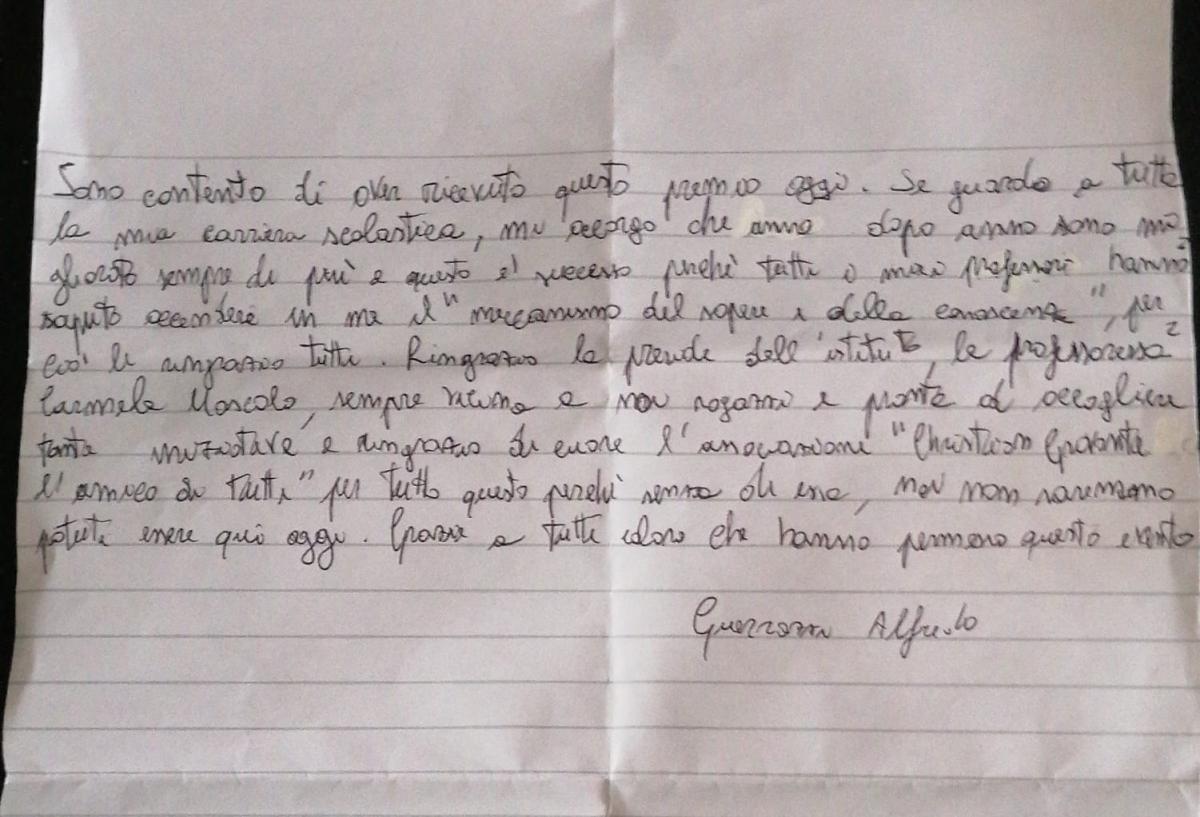 Sono contento di aver ricevuto questo premio oggi. Se guardo a tutta
la mia carriera scolastica, mi accorgo che anno dopo anno sono mi
gliorato sempre di più e questo è successo perché tutti i miei professori hanno
saputo accendere in me il "meccanismo del sapere e della conoscenza", per
ciò li ringrazio tutti. Ringrazio la preside dell'istituto, la professoressa
Carmela Mascolo, sempre vicina a noi ragazzi e pronta ad accogliere
tante iniziative e ringrazio di cuore l'associazione "Christian Gravante
l'amico di tutti" per tutto questo perché senza di essa, noi non saremmo
potuti essere qui oggi. Grazie a tutti coloro che hanno permesso questo evento
Alfredo